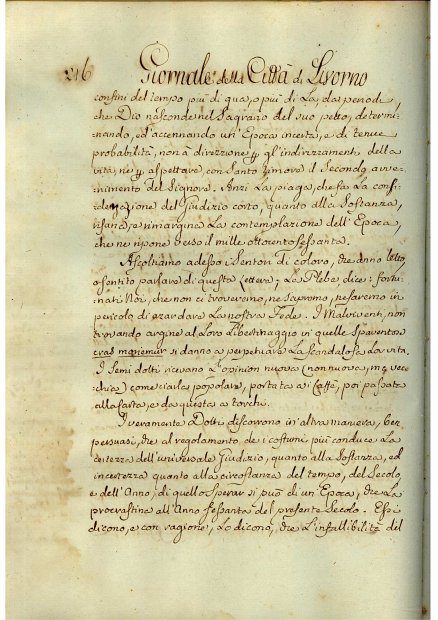 216 Giornale della Città di Livorno
confini del tempo più di qua, o più di La, da' periodi,
che Dio nasconde nel Sagrario del suo petto, determi-
nando, ed'accennando un'Epoca incerta, e di tenue
probabilità, non à direzzione gl'indirizzamenti della
vita, ne aspettare con Santo timore il Secondo avve-
nimento del Signore. Anzi La piaga, che fa La consi-
derazione del Giudizio certo, quanto alla Sostanza,
risana, e rimargina La contemplazione dell'Epoca,
che ne ripone verso il mille ottocento sessanta.
Ascoltiamo adesso i Sentori di coloro, che anno letto,
o sentito parlare di questa Lettera; La Plebe dice: fortu-
nati Noi, che non ci troveremo, ne saremo in
pericolo di azardare La nostra Fede. I Malviventi, non
trovando argine al Loro Libertinaggio in quello Spaventoso
cras moriemur si danno a perpetuare La Scandalosa La vita.
I Semi dotti ricevano L'opinion nuova (non nuova, mà vec-
chia) come ciarla popolare, portata a i Caffè, poi passata
alla carta, e da questa a' torchi.
I veramente Dotti discorrono in altra maniera, ben
persuasi, che al regolamento de i costumi più conduce La
certezza dell'universale Giudizio, quanto alla Sostanza, ed
incertezza quanto alla circostanza del tempo, del Secolo,
e dell'Anno, di quello Sperar si può di un'Epoca, che La
procrastina all'Anno Sessanta del presente Secolo. Essi
dicono, e con ragione, Lo dicono, che L'infallibilità del